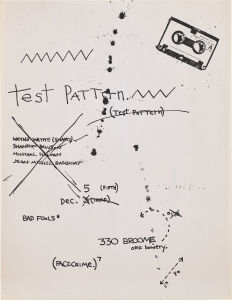 A
Test PATTERN.
(TEST PATTERN)
WAYNE
SHANNON DAWSON
MICHAEL HOLMAN
JEAN MICHEL BASQUIAT
5
Dec.
BAD FOOLS
330 BROOME
OFF bowery.
(FACECRIME.) 7